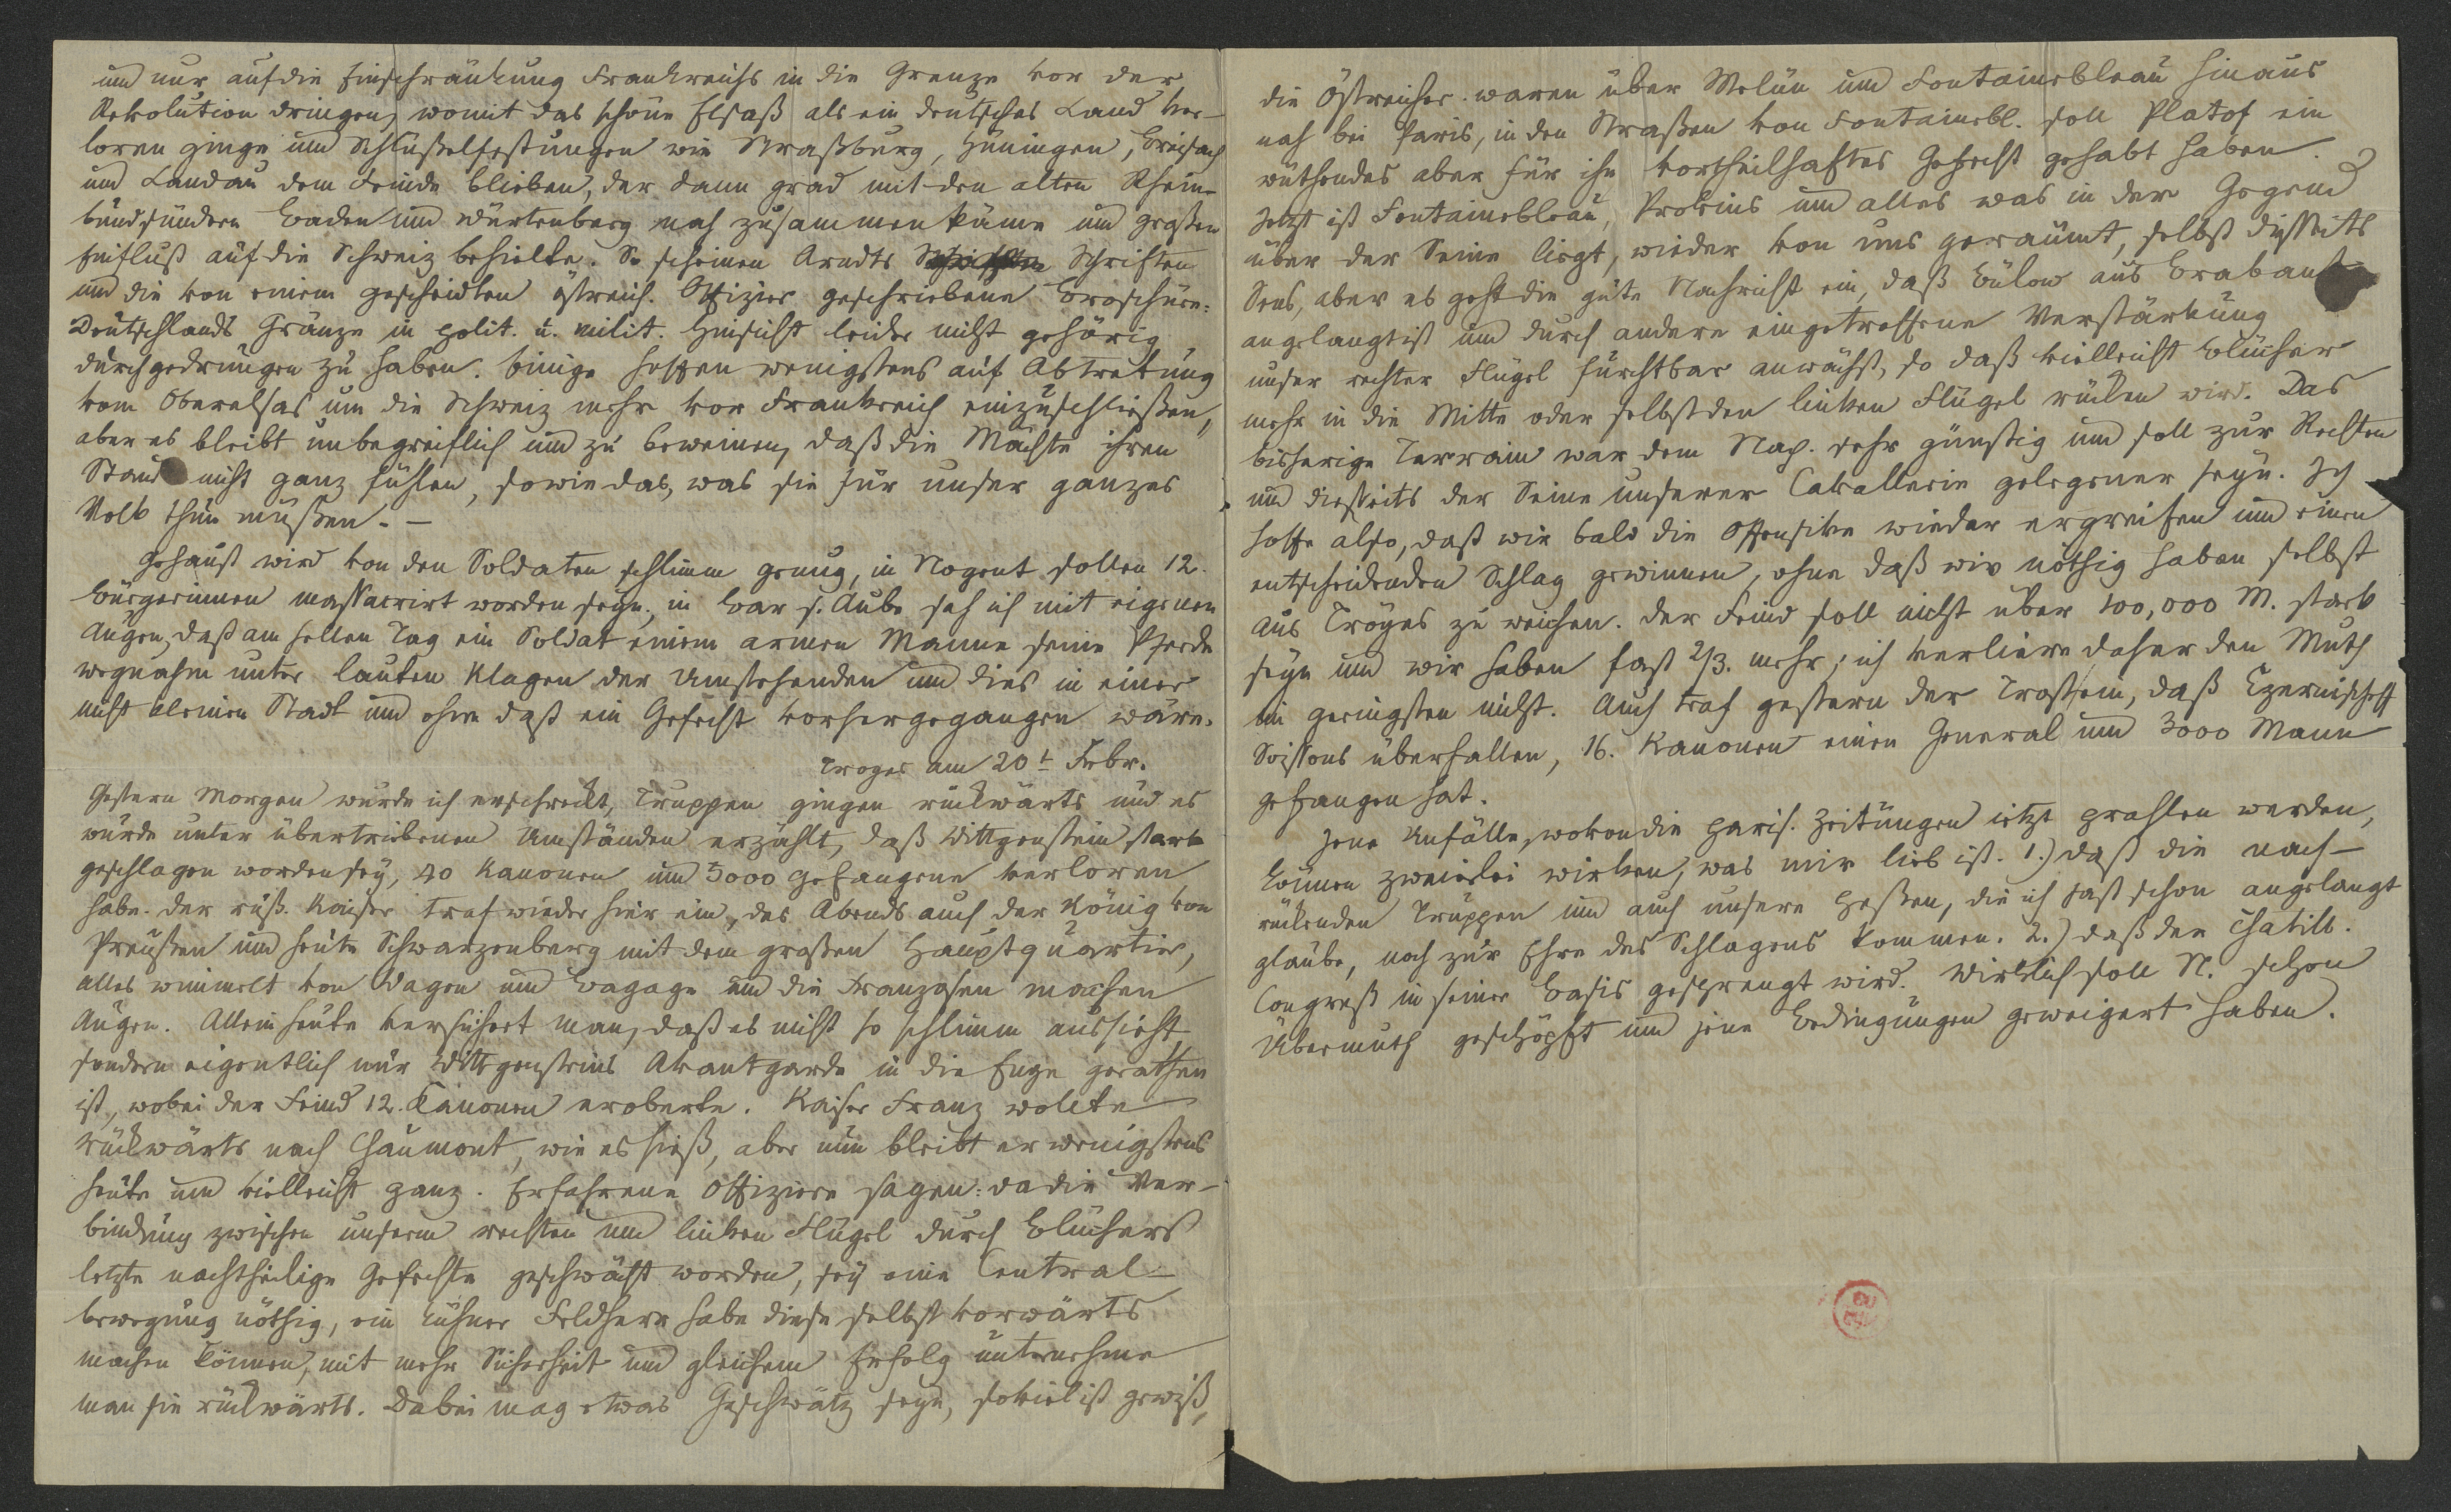 und nur auf die Einschränkung Frankreichs in die Grenze vor der
Revolution dringen, womit das schöne Elsaß als ein deutsches Land ver-
loren ginge und Schlüßelfestungen wie Straßburg, Hüningen, Breisach
und Landau dem Feinde blieben, der dann grad mit den alten Rhein-
bundsündern Baden und Würtenberg nah zusammen käme und großen
Einfluß auf die Schweiz behielte. So scheinen Arndts Schriften
und die von einem gescheidten östreich. Offizier geschriebene Broschüre:
Deutschlands Gränze in polit. u. milit. Hinsicht leider nicht gehörig
durchgedrungen zu haben. Einige hoffen wenigstens auf Abtretung
vom Oberelsas um die Schweiz mehr vor Frankreich einzuschließen,
aber es bleibt unbegreiflich und zu beweinen, daß die Mächte ihren
Stand nicht ganz fühlen, sowie das, was sie für unser ganzes
Volk thun müßen. —
Gehaust wird von den Soldaten schlimm genug, in Nogent sollen 12.
Bürgerinnen massacrirt worden seyn, in Bar s. Aube sah ich mit eigenen
Augen, daß am hellen Tag ein Soldat einem armen Manne seine Pferde
wegnahm unter lauten Klagen der Umstehenden und dies in einer
nicht kleinen Stadt und ohne daß ein Gefecht vorhergegangen wäre.
Troyes am 20t Febr.
Gestern Morgen wurde ich erschreckt, Truppen gingen rückwärts und es
wurde unter übertriebenen Umständen erzählt, daß Wittgenstein stark
geschlagen worden sey, 40 Kanonen und 5000 Gefangene verloren
habe. Der russ. Kaiser traf wieder hier ein, des Abends auch der König von
Preußen und heute Schwarzenberg mit dem großen Hauptquartier,
alles wimmelt von Wagen und Bagage und die Franzosen machen
Augen. Allein heute versichert man, daß es nicht so schlimm aussieht,
sondern eigentlich nur Wittgensteins Avantgarde in die Enge gerathen
ist, wobei der Feind 12. Kanonen eroberte. Kaiser Franz wollte
rückwärts nach Chaumont, wie es hieß, aber nun bleibt er wenigstens
heute und vielleicht ganz. Erfahrene Offiziere sagen: da die Ver-
bindung zwischen unserm rechten und linken Flügel durch Blüchers
letzte nachtheilige Gefechte geschwächt worden, sey eine Central-
bewegung nöthig, ein kühner Feldherr habe diese selbst vorwärts
machen können, mit mehr Sicherheit und gleichem Erfolg unternehme
man sie rückwärts. Dabei mag etwas Geschwätz seyn, soviel ist gewiß,
die Östreicher waren über Melün und Fontainebleau hinaus
nah bei Paris, in den Straßen von Fontainebl. soll Platof ein
wüthendes aber für ihn vortheilhaftes Gefecht gehabt haben.
Jetzt ist Fontainebleau, Provins und alles was in der Gegend
über der Seine liegt, wieder von uns geräumt, selbst disseits
Sens, aber es geht die gute Nachricht ein, daß Bülow aus Brabant
angelangt ist und durch andere eingetroffene Verstärkung
unser rechter Flügel furchtbar anwächst, so daß vielleicht Blücher
mehr in die Mitte oder selbst den linken Flügel rücken wird. Das
bisherige Terrain war dem Nap. sehr günstig und soll zur Rechten
und disseits der Seine unserer Cavallerie gelegener seyn. Ich
hoffe also, daß wir bald die Offensive wieder ergreifen und einen
entscheidenden Schlag gewinnen, ohne daß wir nöthig haben selbst
aus Troyes zu weichen. Der Feind soll nicht über 100,000 M. stark
seyn und wir haben fast 2/3. mehr; ich verliere daher den Muth
im geringsten nicht. Auch traf gestern der Trost ein, daß Czernischeff
Soissons überfallen, 16. Kanonen einen General und 3000 Mann
gefangen hat.
Jene Unfälle, wovon die paris. Zeitungen jetzt prahlen werden,
können zweierlei wirken, was mir lieb ist. 1.) daß die nach-
rückenden Truppen und auch unsere Heßen, die ich fast schon angelangt
glaube, noch zur Ehre des Schlagens kommen. 2.) daß der Chatill.
Congreß in seiner Basis gesprengt wird. Wirklich soll N. schon
Übermuth geschöpft und jene Bedingungen geweigert haben.